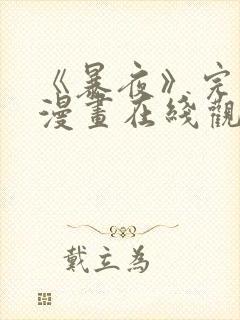 《暴夜》完
漫畫在綫觀
戴立為